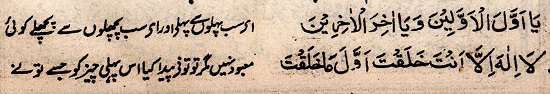 يَا اَوَّلَ الْاَوَّلِيْنَ وَيَا اٰخِرَ الْاٰخِرِيْنَ اے سب پہلوں سے پہلے اور اے سب پچھلوں سے پچھلے کوئی
لَا اِلٰهَ اِلَّا اَنْتَ خَلَقْتَ اَوَّلَ مَا خَلَقْتَ معبود نہیں مگر تو تونے پیدا کیا اس پہلی چیز کو جسے تو نے